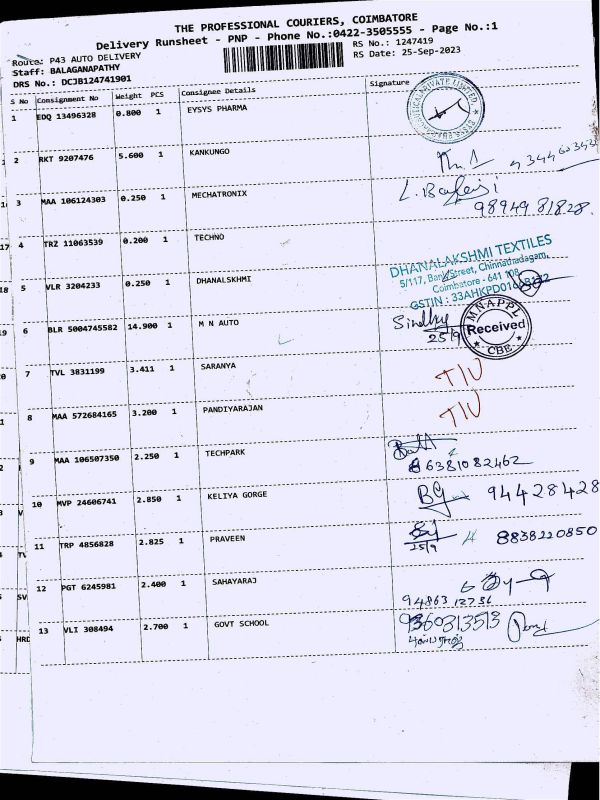 THE PROFESSIONAL COURIERS, COIMBATORE
Delivery Runsheet - PNP - Phone No.:0422-3505555 - Page No.:1
Route: P43 AUTO DELIVERY
RS No.: 1247419
Staff: BALAGANAPATHY
RS Date: 25-Sep-2023
DRS No.: DCJB124741901
S No Consignment No Weight PCS Consignee Details Signature
1 EDQ 13496328 0.800 1 EYSYS PHARMA
2 RKT 9207476 5.600 1 KANKUNGO
3 MAA 106124303 0.250 1 MECHATRONIX
98949 81828.
4 TRZ 11063539 0.200 1 TECHNO
DHANALAKSHMI TEXTILES
5/117, Bank Street, Chinnathadagam,
Coimbatore - 641 108
GSTIN : 33AHKPD01
5 VLR 3204233 0.250 1 DHANALSKHMI
6 BLR 5004745582 14.900 1 M N AUTO
25/9
MNAPPL
Received
CBE
7 TVL 3831199 3.411 1 SARANYA
T/U
8 MAA 572684165 3.200 1 PANDIYARAJAN
T/U
9 MAA 106507350 2.250 1 TECHPARK
6381082462
10 MVP 24606741 2.850 1 KELIYA GORGE
94428428
11 TRP 4856828 2.825 1 PRAVEEN
25/9 8838220850
12 PGT 6245981 2.400 1 SAHAYARAJ
13 VLI 308494 2.700 1 GOVT SCHOOL
9360313513